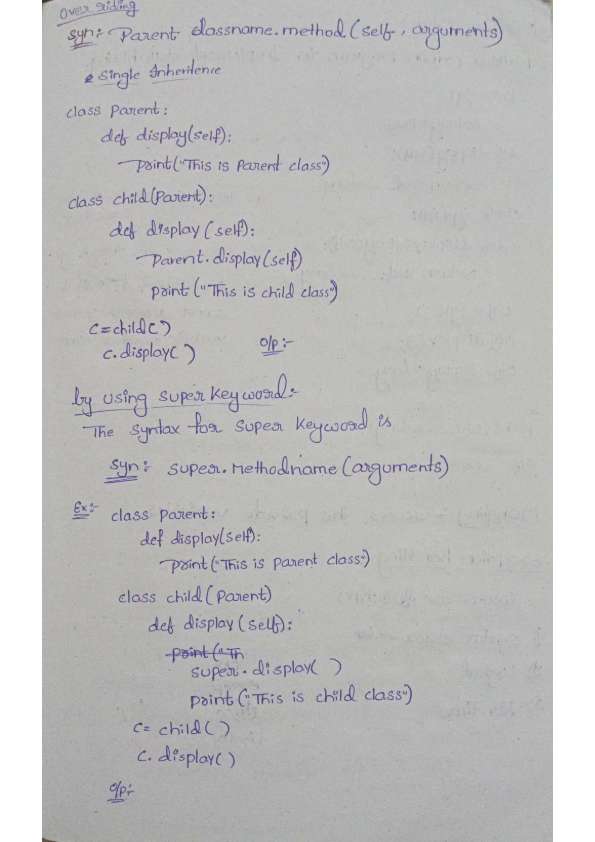 Over riding
Syn:- Parent classname.method(self, arguments)
Single Inheritence
class Parent:
def display(self):
print("This is Parent class")
class child(Parent):
def display(self):
Parent.display(self)
print("This is child class")
c=child()
c.display() o/p:-
by using super keyword:-
The syntax for super keyword is
Syn:- super.methodname(arguments)
Ex:- class Parent:
def display(self):
print("This is Parent class")
class child(Parent)
def display(self):
print("Th
super.display()
print("This is child class")
c= child()
c.display()
o/p:-